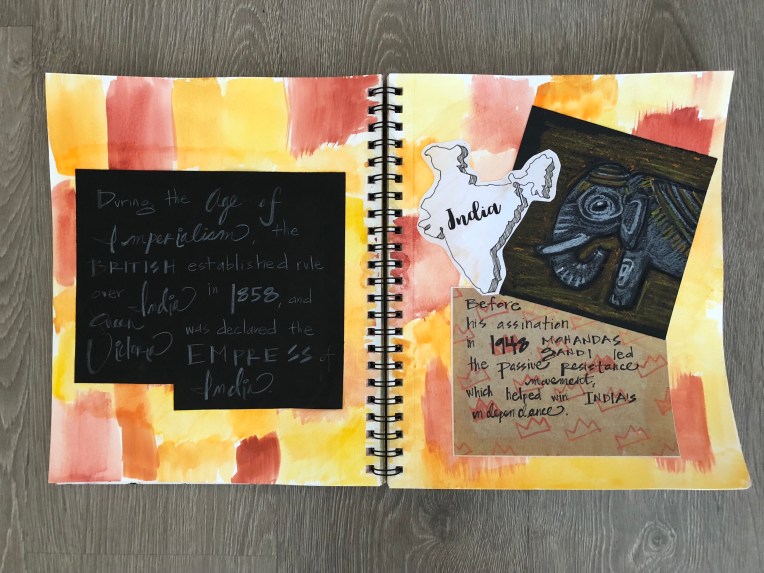 During the Age of
Imperialism, the
BRITISH established rule
over India in 1858, and
Queen
was declared the
Victoria EMPRESS of
India
India
Before
his assination
in 1948 MOHANDAS
GANDI led
the passive resistance
movement,
which helped win INDIA's
independance.